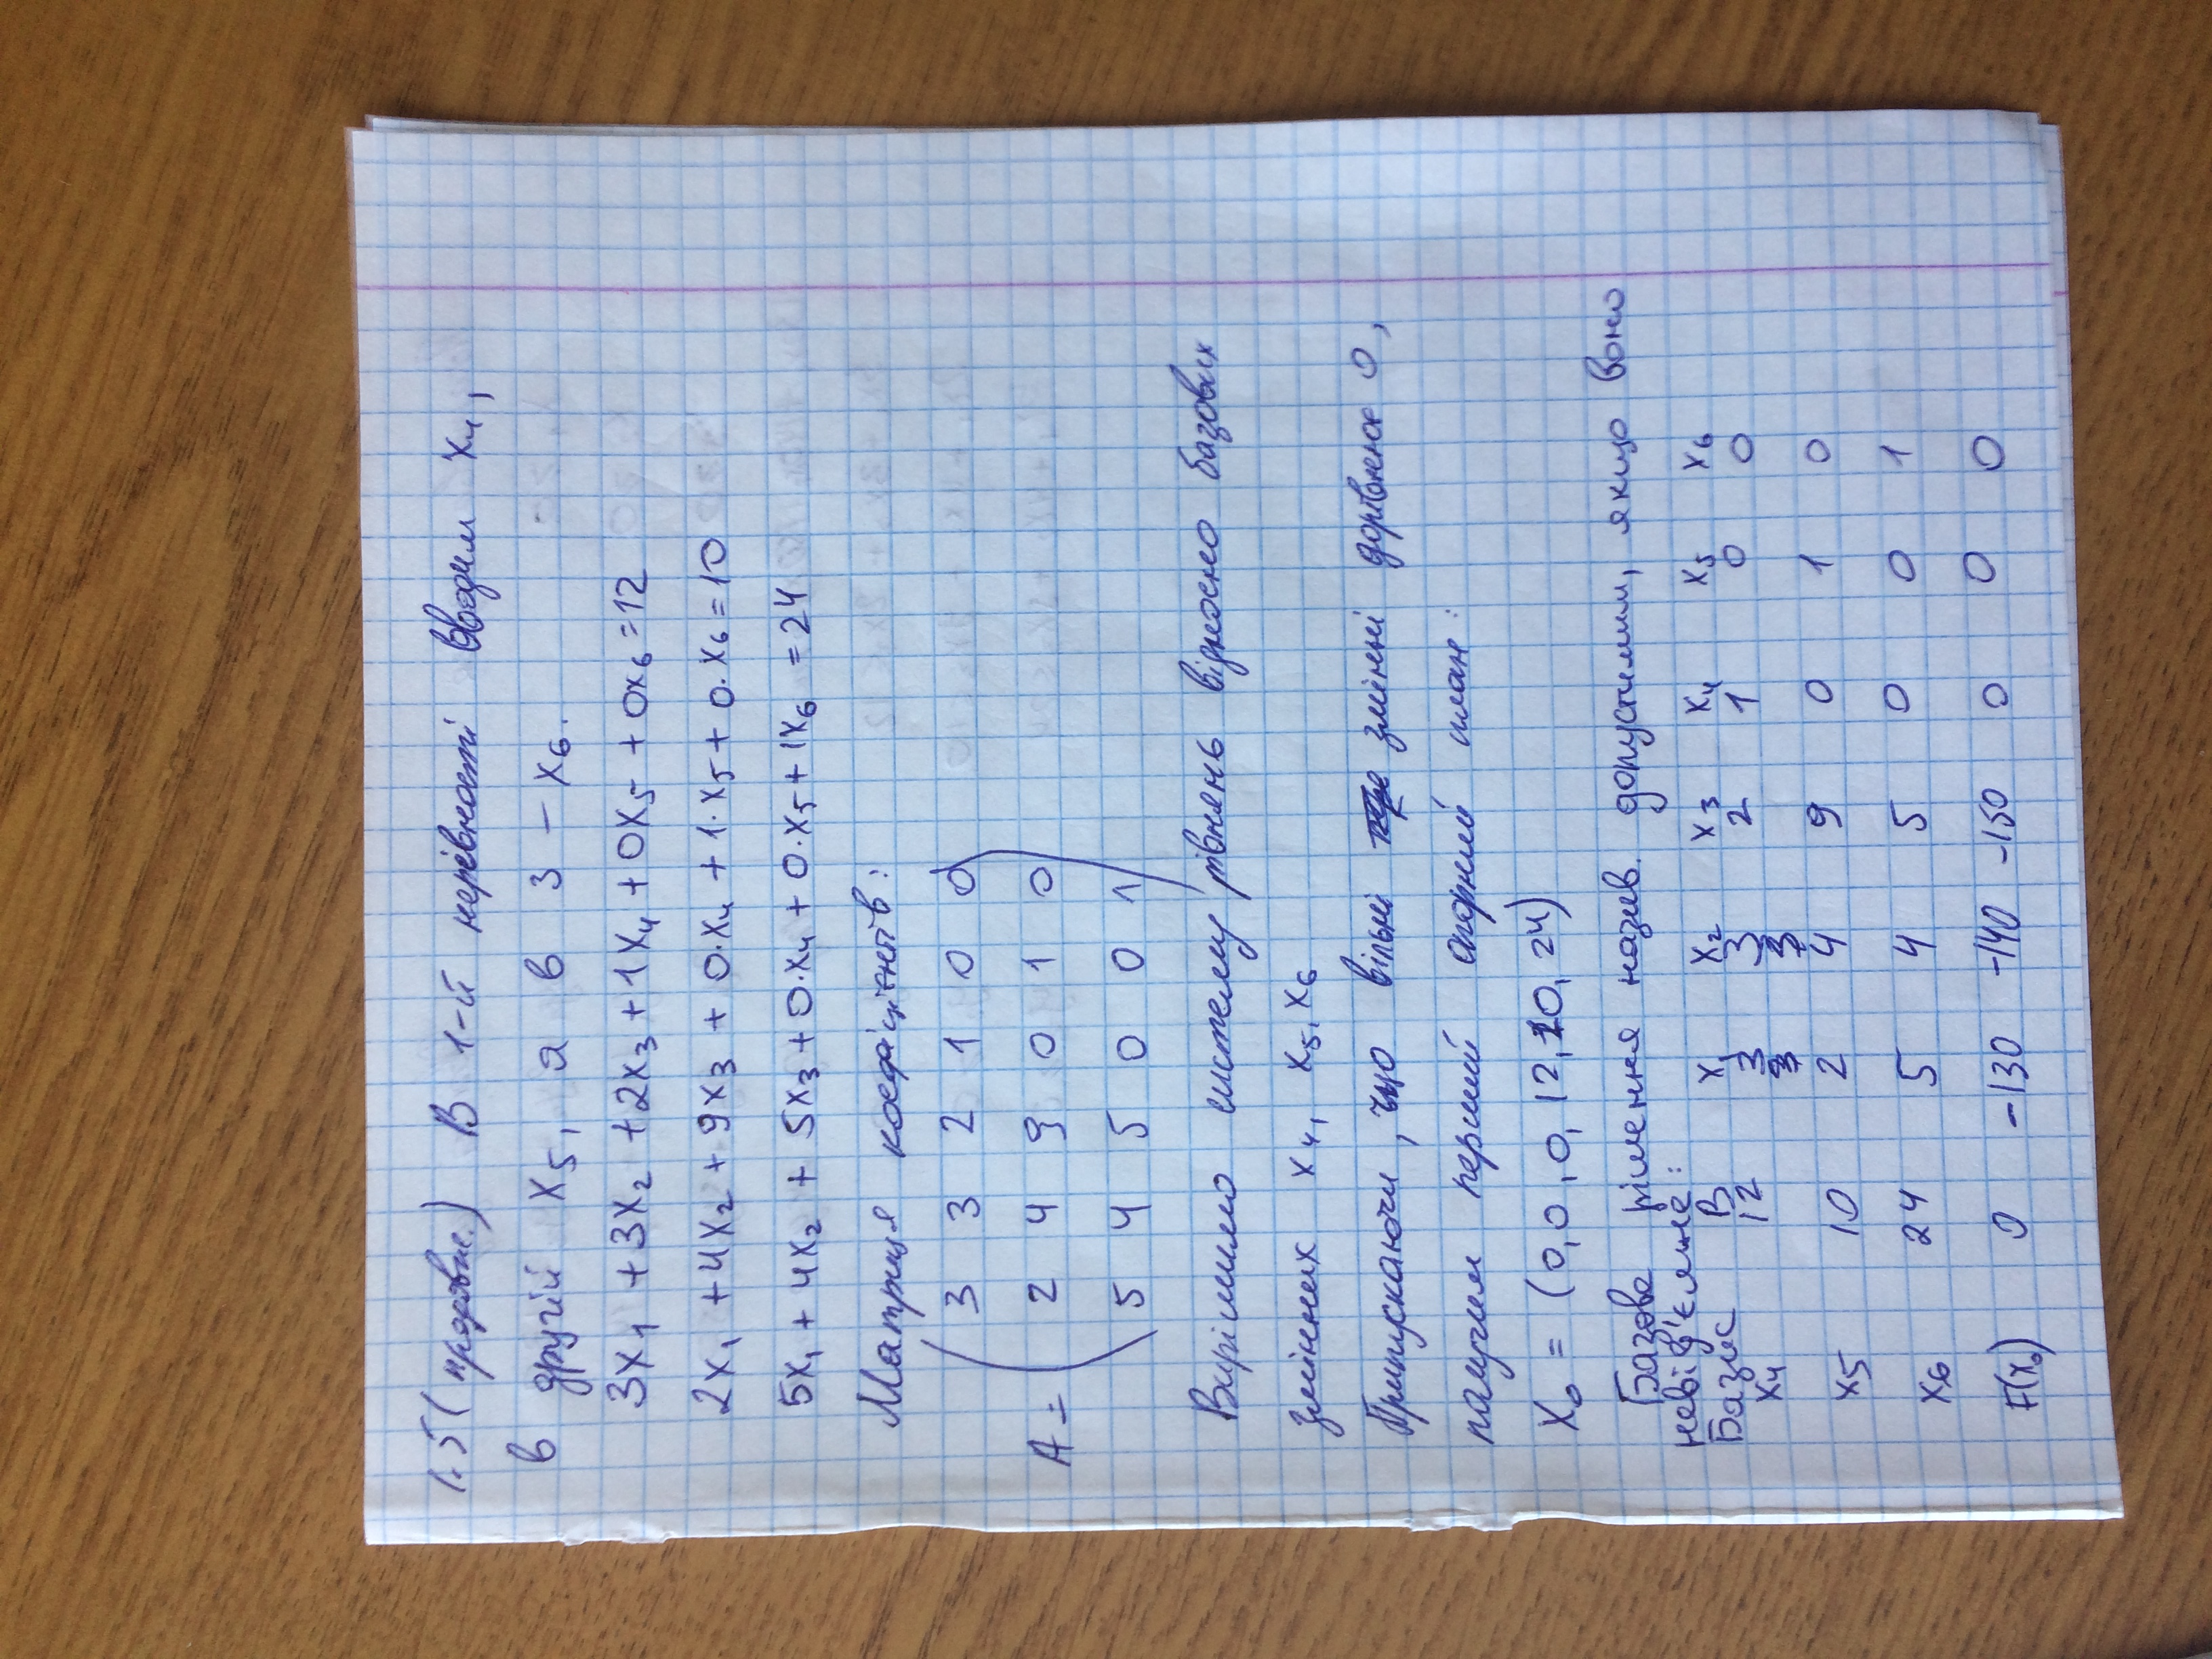 1.5 (продовж.) В 1-й нерівності вводим x₄,
в другій x₅, а в 3 – x₆.
3x₁ + 3x₂ + 2x₃ + 1x₄ + 0x₅ + 0x₆ = 12
2x₁ + 4x₂ + 9x₃ + 0·x₄ + 1·x₅ + 0·x₆ = 10
5x₁ + 4x₂ + 5x₃ + 0·x₄ + 0·x₅ + 1x₆ = 24
Матриця коефіцієнтів:
3 3 2 1 0 0
A = 2 4 9 0 1 0
5 4 5 0 0 1
Вирішимо систему рівнянь відносно базових
змінних x₄, x₅, x₆
Припускаючи, що вільні змінні дорівнює 0,
получим перший опорний план:
X₀ = (0, 0, 0, 12, 10, 24)
Базове рішення назив. допустимим, якщо воно
невід'ємне:
Базис B x₁ x₂ x₃ x₄ x₅ x₆
x₄ 12 3 3 2 1 0 0
x₅ 10 2 4 9 0 1 0
x₆ 24 5 4 5 0 0 1
F(x₀) 0 -130 -140 -150 0 0 0